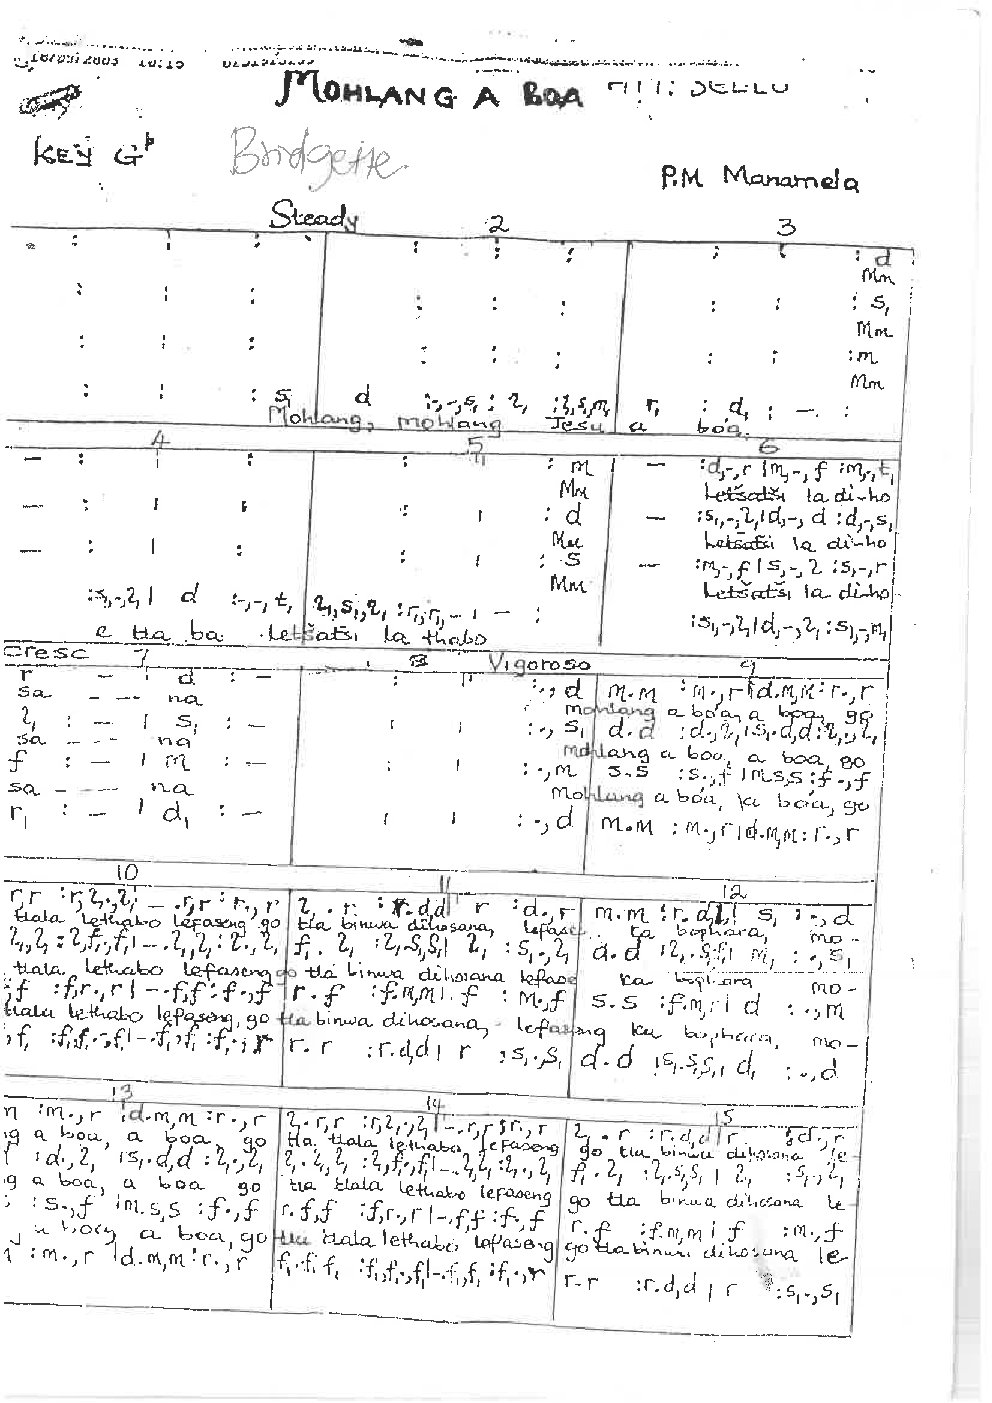 MOHLANG A BOA
KEY G♭ Bridgette
P.M Manamela
Steady 2 3
: : : : : : : : : d
Mm
: : : : : : : : : s₁
Mm
: : : : : : : : : m
Mm
: : : s₁ d :-,-,s₁ : l₁ :l₁,s₁,m₁ r₁ : d₁ : - . :
Mohlang, mohlang Jesu a boa.
4 5 6
- : | : : | : m - :d,-,r |m,-,f :m,-,t₁
Mm Letšatši la dinho
- : | : : | : d - :s₁,-,l₁|d,-,d :d,-,s₁
Mm Letšatši la dinho
- : | : : | : s - :m,-,f |s,-,l :s,-,r
Mm Letšatši la dinho-
:s₁,-,l₁| d :-,-,t₁ l₁,s₁,l₁ :r₁,r₁,- | - : :s₁,-,l₁|d,-,l₁ :s₁,-,m₁
e tla ba letšatši la thabo
Cresc 7 8 Vigoroso 9
r - | d : - : | :.,d m.m :m.,r|d.m,m:r.,r
sa - - - na mohlang a boa, a boa, go
l₁ : - | s₁ : - | | :.,s₁ d.d :d.,l₁|s₁.d,d:l₁.,l₁
sa - - - na mohlang a boa, a boa, go
f : - | m : - | | :.,m s.s :s.,f|m.s,s:f.,f
sa - - - na Mohlang a boa, a boa, go
r₁ : - | d₁ : - | | :.,d m.m :m.,r|d.m,m:r.,r
10 11 12
r,r :r,l₁.,l₁|-.r,r :r.,r l₁.r :r.d,d| r :d.,r m.m :r.d,l₁| s₁ :.,d
tlala lethabo lefaseng go tla binwa dihosana, lefase ka bophara, mo-
l₁,l₁ :l₁,f₁.,f₁|-.l₁,l₁ :l₁.,l₁ f₁.l₁ :l₁.s₁,s₁| l₁ :s₁.,l₁ d.d :l₁.s₁,f₁| m₁ :.,s₁
tlala lethabo lefaseng go tla binwa dihosana lefase ka bophara mo-
,f :f,r.,r|-.f,f :f.,f r.f :f.m,m|.f :m.,f s.s :f.m,r| d :.,m
tlala lethabo lefaseng, go tla binwa dihosana, lefaseng ka bophara, mo-
,f₁ :f₁,f₁.,f₁|-.f₁,f₁ :f₁.,r r.r :r.d,d| r :s₁.,s₁ d.d :s₁.s₁,s₁| d₁ :.,d
13 14 15
m :m.,r |d.m,m :r.,r l₁.r,r :r,l₁.,l₁|-.r,r:r.,r l₁.r :r.d,d|r :d.,r
ng a boa, a boa, go tla tlala lethabo lefaseng go tla binwa dihosana le-
:d.,l₁ |s₁.d,d :l₁.,l₁ l₁.l₁,l₁ :l₁,f₁.,f₁|-.l₁,l₁:l₁.,l₁ f₁.l₁ :l₁.s₁,s₁| l₁ :s₁.,l₁
ng a boa, a boa go tla tlala lethabo lefaseng go tla binwa dihosana le-
:s.,f |m.s,s :f.,f r.f,f :f,r.,r|-.f,f :f.,f r.f :f.m,m| f :m.,f
a boa, go tla tlala lethabo lefaseng go tla binwa dihosana le-
:m.,r |d.m,m:r.,r f₁.f₁,f₁ :f₁,f₁.,f₁|-.f₁,f₁ :f₁.,r r.r :r.d,d | r :s₁.,s₁